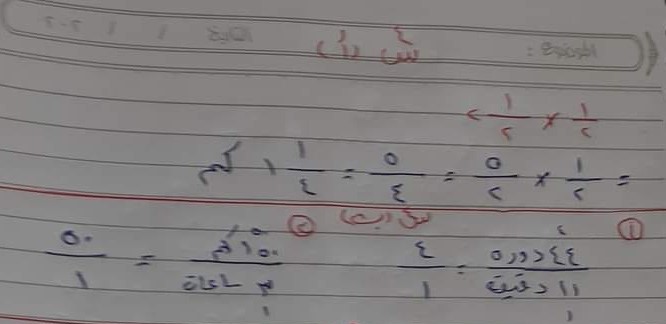 الموضوع : التاريخ / / ٢٠٢
١/٢ × ٢ ١/٢
= ١/٢ × ٥/٢ = ٥/٤ = ١ ١/٤ كم
س (ب)
① ٤٤ دورة / ١١ دقيقة = ٤/١ ② ١٥٠ كم / ٣ ساعات = ٥٠/١